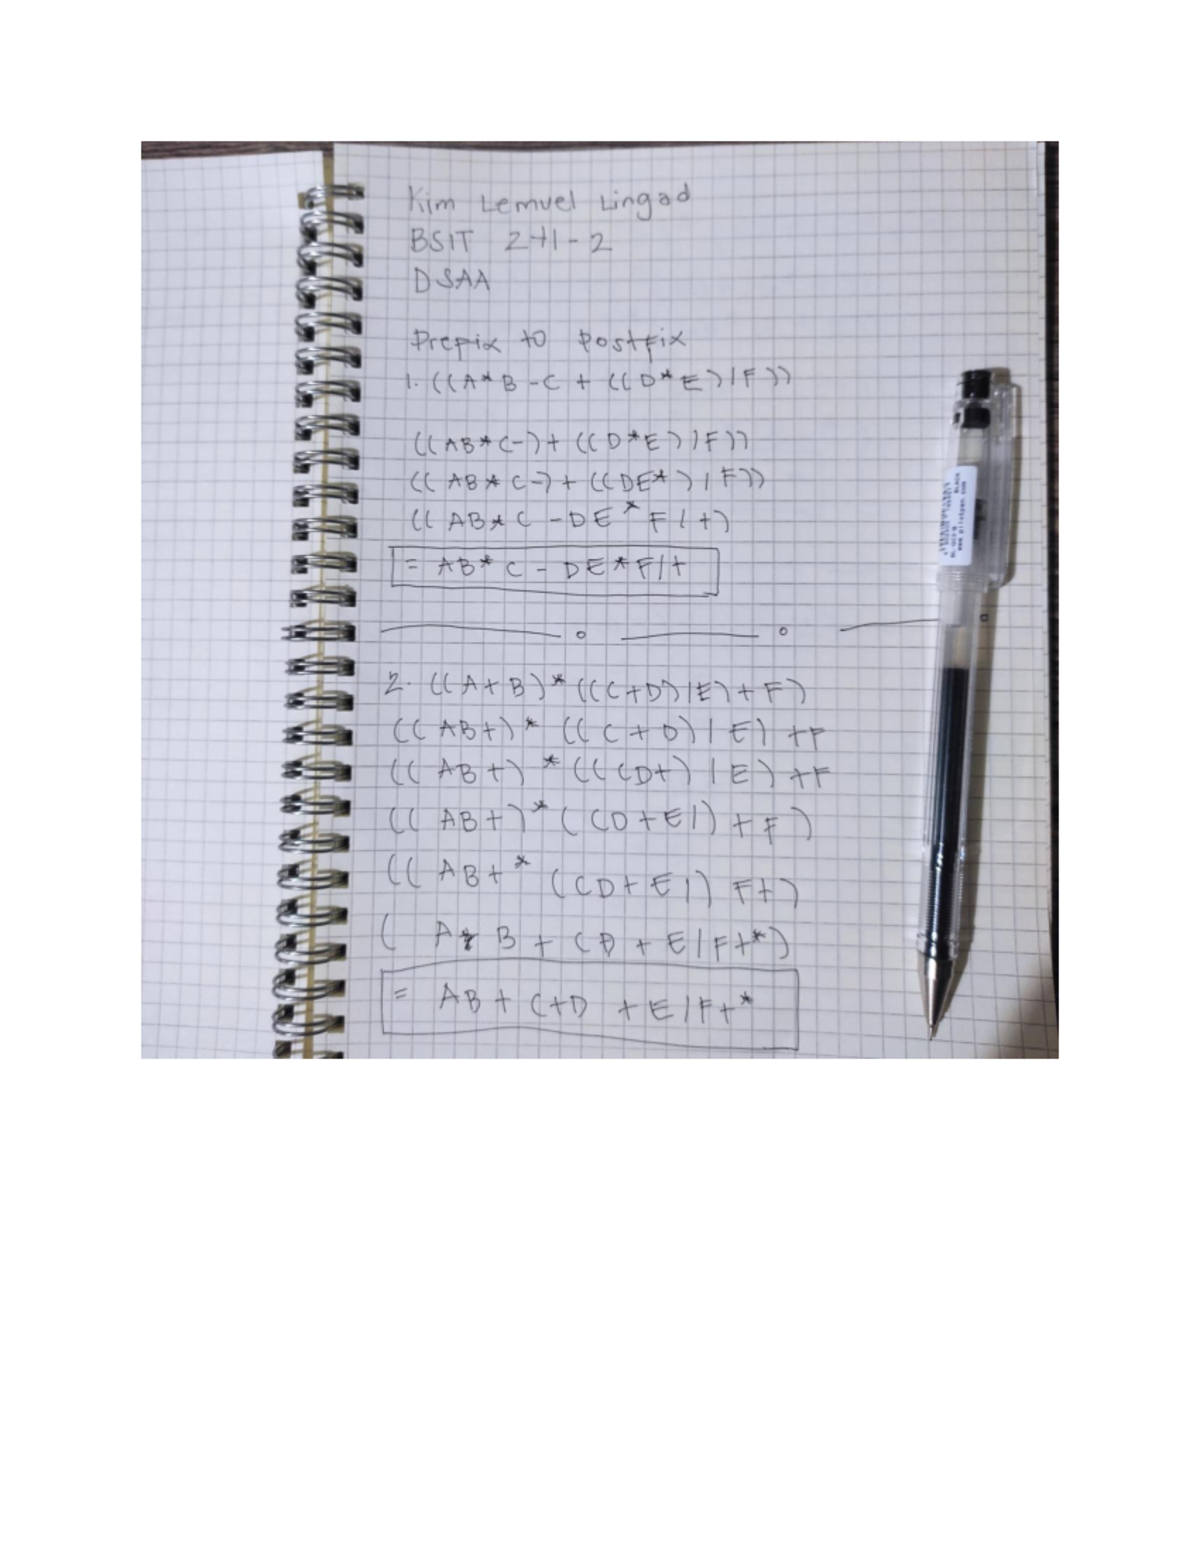 Kim Lemuel Lingad
BSIT 2-1-2
DSAA
Prepix to postfix
1. ((A*B-C + ((D*E)/F))
((AB*C-)+((D*E)/F))
((AB*C-)+((DE*)/F))
((AB*C-DE*F/+)
= AB*C-DE*F/+
2. ((A+B)*(((C+D)/E)+F)
((AB+)*(((C+D)/E)+F
((AB+)*(((CD+)/E)+F
((AB+)*((CD+E/)+F)
((AB+*((CD+E/)F+)
(A*B+CD+E/F+*)
= AB+C+D+E/F+*
www.pilotpen.com
BLACK